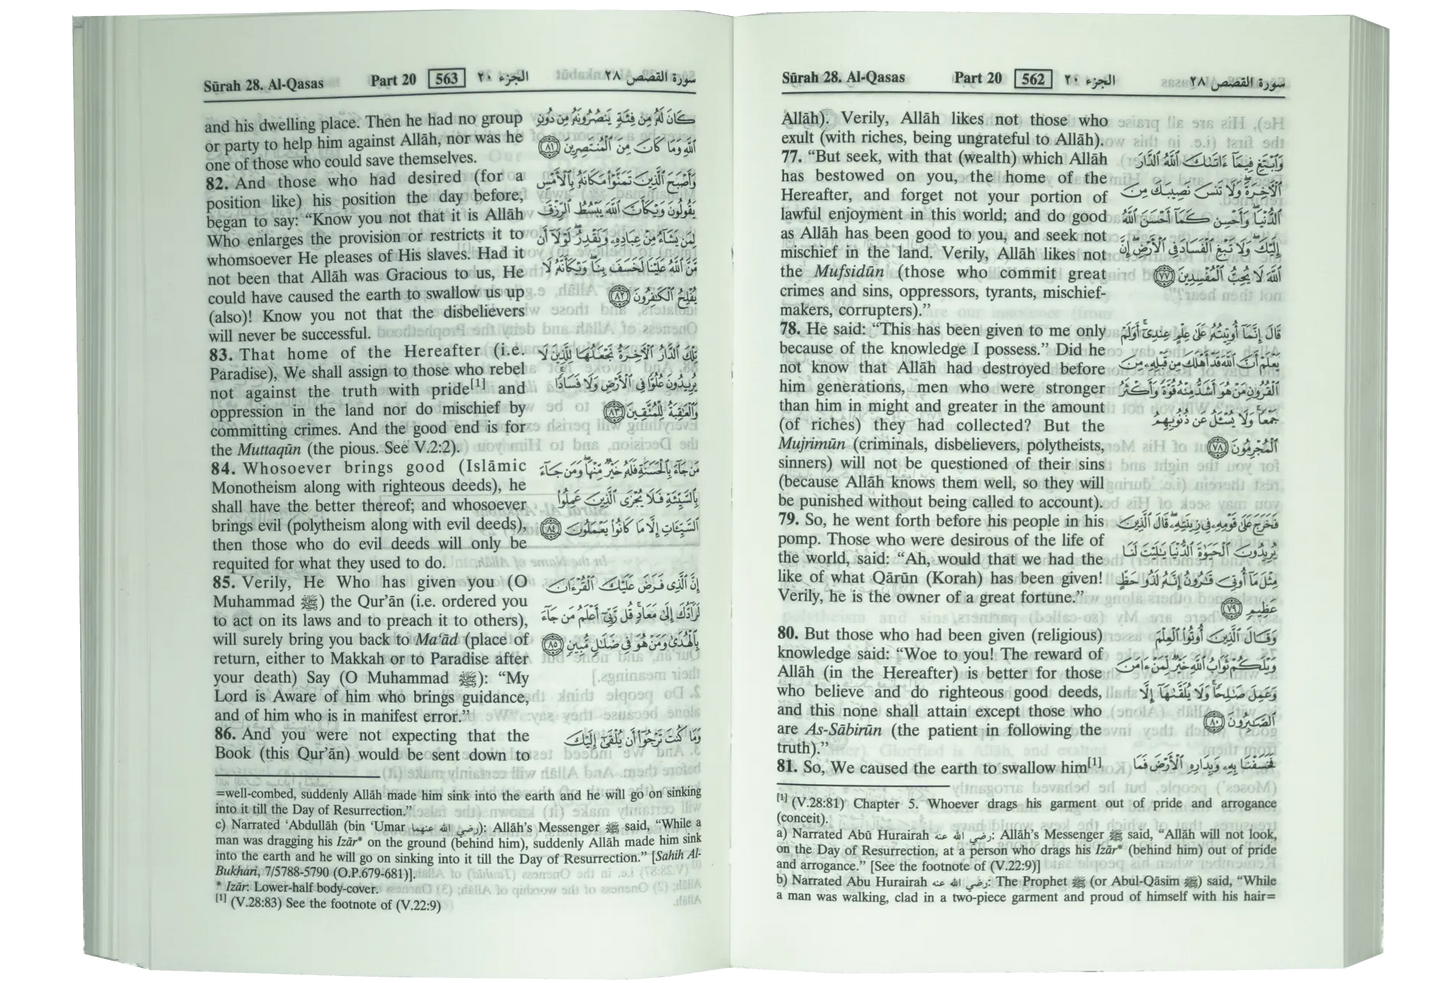 Sūrah 28. Al-Qasas Part 20 562 الجزء ٢٠ سورة القصص ٢٨
Allāh). Verily, Allāh likes not those who
exult (with riches, being ungrateful to Allāh).
77. “But seek, with that (wealth) which Allāh
has bestowed on you, the home of the
Hereafter, and forget not your portion of
lawful enjoyment in this world; and do good
as Allāh has been good to you, and seek not
mischief in the land. Verily, Allāh likes not
the Mufsidūn (those who commit great
crimes and sins, oppressors, tyrants, mischief-
makers, corrupters).”
78. He said: “This has been given to me only
because of the knowledge I possess.” Did he
not know that Allāh had destroyed before
him generations, men who were stronger
than him in might and greater in the amount
(of riches) they had collected? But the
Mujrimūn (criminals, disbelievers, polytheists,
sinners) will not be questioned of their sins
(because Allāh knows them well, so they will
be punished without being called to account).
79. So, he went forth before his people in his
pomp. Those who were desirous of the life of
the world, said: “Ah, would that we had the
like of what Qārūn (Korah) has been given!
Verily, he is the owner of a great fortune.”
80. But those who had been given (religious)
knowledge said: “Woe to you! The reward of
Allāh (in the Hereafter) is better for those
who believe and do righteous good deeds,
and this none shall attain except those who
are As-Sābirūn (the patient in following the
truth).”
81. So, We caused the earth to swallow him[1]
وَٱبْتَغِ فِيمَآ ءَاتَىٰكَ ٱللَّهُ ٱلدَّارَ
ٱلْأَخِرَةَ وَلَا تَنسَ نَصِيبَكَ مِنَ
ٱلدُّنْيَا وَأَحْسِن كَمَآ أَحْسَنَ ٱللَّهُ
إِلَيْكَ وَلَا تَبْغِ ٱلْفَسَادَ فِى ٱلْأَرْضِ إِنَّ
ٱللَّهَ لَا يُحِبُّ ٱلْمُفْسِدِينَ ٧٧
قَالَ إِنَّمَآ أُوتِيتُهُۥ عَلَىٰ عِلْمٍ عِندِىٓ أَوَلَمْ
يَعْلَمْ أَنَّ ٱللَّهَ قَدْ أَهْلَكَ مِن قَبْلِهِۦ مِنَ
ٱلْقُرُونِ مَنْ هُوَ أَشَدُّ مِنْهُ قُوَّةً وَأَكْثَرُ
جَمْعًا وَلَا يُسْـَٔلُ عَن ذُنُوبِهِمُ
ٱلْمُجْرِمُونَ ٧٨
فَخَرَجَ عَلَىٰ قَوْمِهِۦ فِى زِينَتِهِۦ قَالَ ٱلَّذِينَ
يُرِيدُونَ ٱلْحَيَوٰةَ ٱلدُّنْيَا يَٰلَيْتَ لَنَا
مِثْلَ مَآ أُوتِىَ قَٰرُونُ إِنَّهُۥ لَذُو حَظٍّ
عَظِيمٍ ٧٩
وَقَالَ ٱلَّذِينَ أُوتُوا۟ ٱلْعِلْمَ
وَيْلَكُمْ ثَوَابُ ٱللَّهِ خَيْرٌ لِّمَنْ ءَامَنَ
وَعَمِلَ صَٰلِحًا وَلَا يُلَقَّىٰهَآ إِلَّا
ٱلصَّٰبِرُونَ ٨٠
فَخَسَفْنَا بِهِۦ وَبِدَارِهِ ٱلْأَرْضَ فَمَا
[1] (V.28:81) Chapter 5. Whoever drags his garment out of pride and arrogance
(conceit).
a) Narrated Abū Hurairah رضي الله عنه: Allāh’s Messenger ﷺ said, “Allāh will not look,
on the Day of Resurrection, at a person who drags his Izār* (behind him) out of pride
and arrogance.” [See the footnote of (V.22:9)]
b) Narrated Abu Hurairah رضي الله عنه: The Prophet ﷺ (or Abul-Qāsim ﷺ) said, “While
a man was walking, clad in a two-piece garment and proud of himself with his hair=
Sūrah 28. Al-Qasas Part 20 563 الجزء ٢٠ سورة القصص ٢٨
and his dwelling place. Then he had no group
or party to help him against Allāh, nor was he
one of those who could save themselves.
82. And those who had desired (for a
position like) his position the day before,
began to say: “Know you not that it is Allāh
Who enlarges the provision or restricts it to
whomsoever He pleases of His slaves. Had it
not been that Allāh was Gracious to us, He
could have caused the earth to swallow us up
(also)! Know you not that the disbelievers
will never be successful.
83. That home of the Hereafter (i.e.
Paradise), We shall assign to those who rebel
not against the truth with pride[1] and
oppression in the land nor do mischief by
committing crimes. And the good end is for
the Muttaqūn (the pious. See V.2:2).
84. Whosoever brings good (Islāmic
Monotheism along with righteous deeds), he
shall have the better thereof; and whosoever
brings evil (polytheism along with evil deeds),
then those who do evil deeds will only be
requited for what they used to do.
85. Verily, He Who has given you (O
Muhammad ﷺ) the Qur’ān (i.e. ordered you
to act on its laws and to preach it to others),
will surely bring you back to Ma‘ād (place of
return, either to Makkah or to Paradise after
your death) Say (O Muhammad ﷺ): “My
Lord is Aware of him who brings guidance,
and of him who is in manifest error.”
86. And you were not expecting that the
Book (this Qur’ān) would be sent down to
كَانَ لَهُۥ مِن فِئَةٍ يَنصُرُونَهُۥ مِن دُونِ
ٱللَّهِ وَمَا كَانَ مِنَ ٱلْمُنتَصِرِينَ ٨١
وَأَصْبَحَ ٱلَّذِينَ تَمَنَّوْا۟ مَكَانَهُۥ بِٱلْأَمْسِ
يَقُولُونَ وَيْكَأَنَّ ٱللَّهَ يَبْسُطُ ٱلرِّزْقَ
لِمَن يَشَآءُ مِنْ عِبَادِهِۦ وَيَقْدِرُ لَوْلَآ أَن
مَّنَّ ٱللَّهُ عَلَيْنَا لَخَسَفَ بِنَا وَيْكَأَنَّهُۥ لَا
يُفْلِحُ ٱلْكَٰفِرُونَ ٨٢
تِلْكَ ٱلدَّارُ ٱلْأَخِرَةُ نَجْعَلُهَا لِلَّذِينَ لَا
يُرِيدُونَ عُلُوًّا فِى ٱلْأَرْضِ وَلَا فَسَادًا
وَٱلْعَٰقِبَةُ لِلْمُتَّقِينَ ٨٣
مَن جَآءَ بِٱلْحَسَنَةِ فَلَهُۥ خَيْرٌ مِّنْهَا وَمَن جَآءَ
بِٱلسَّيِّئَةِ فَلَا يُجْزَى ٱلَّذِينَ عَمِلُوا۟
ٱلسَّيِّـَٔاتِ إِلَّا مَا كَانُوا۟ يَعْمَلُونَ ٨٤
إِنَّ ٱلَّذِى فَرَضَ عَلَيْكَ ٱلْقُرْءَانَ
لَرَآدُّكَ إِلَىٰ مَعَادٍ قُل رَّبِّىٓ أَعْلَمُ مَن جَآءَ
بِٱلْهُدَىٰ وَمَنْ هُوَ فِى ضَلَٰلٍ مُّبِينٍ ٨٥
وَمَا كُنتَ تَرْجُوٓا۟ أَن يُلْقَىٰٓ إِلَيْكَ
=well-combed, suddenly Allāh made him sink into the earth and he will go on sinking
into it till the Day of Resurrection.”
c) Narrated ‘Abdullāh (bin ‘Umar رضي الله عنهما): Allāh’s Messenger ﷺ said, “While a
man was dragging his Izār* on the ground (behind him), suddenly Allāh made him sink
into the earth and he will go on sinking into it till the Day of Resurrection.” [Sahih Al-
Bukhari, 7/5788-5790 (O.P.679-681)].
* Izār: Lower-half body-cover.
[1] (V.28:83) See the footnote of (V.22:9)